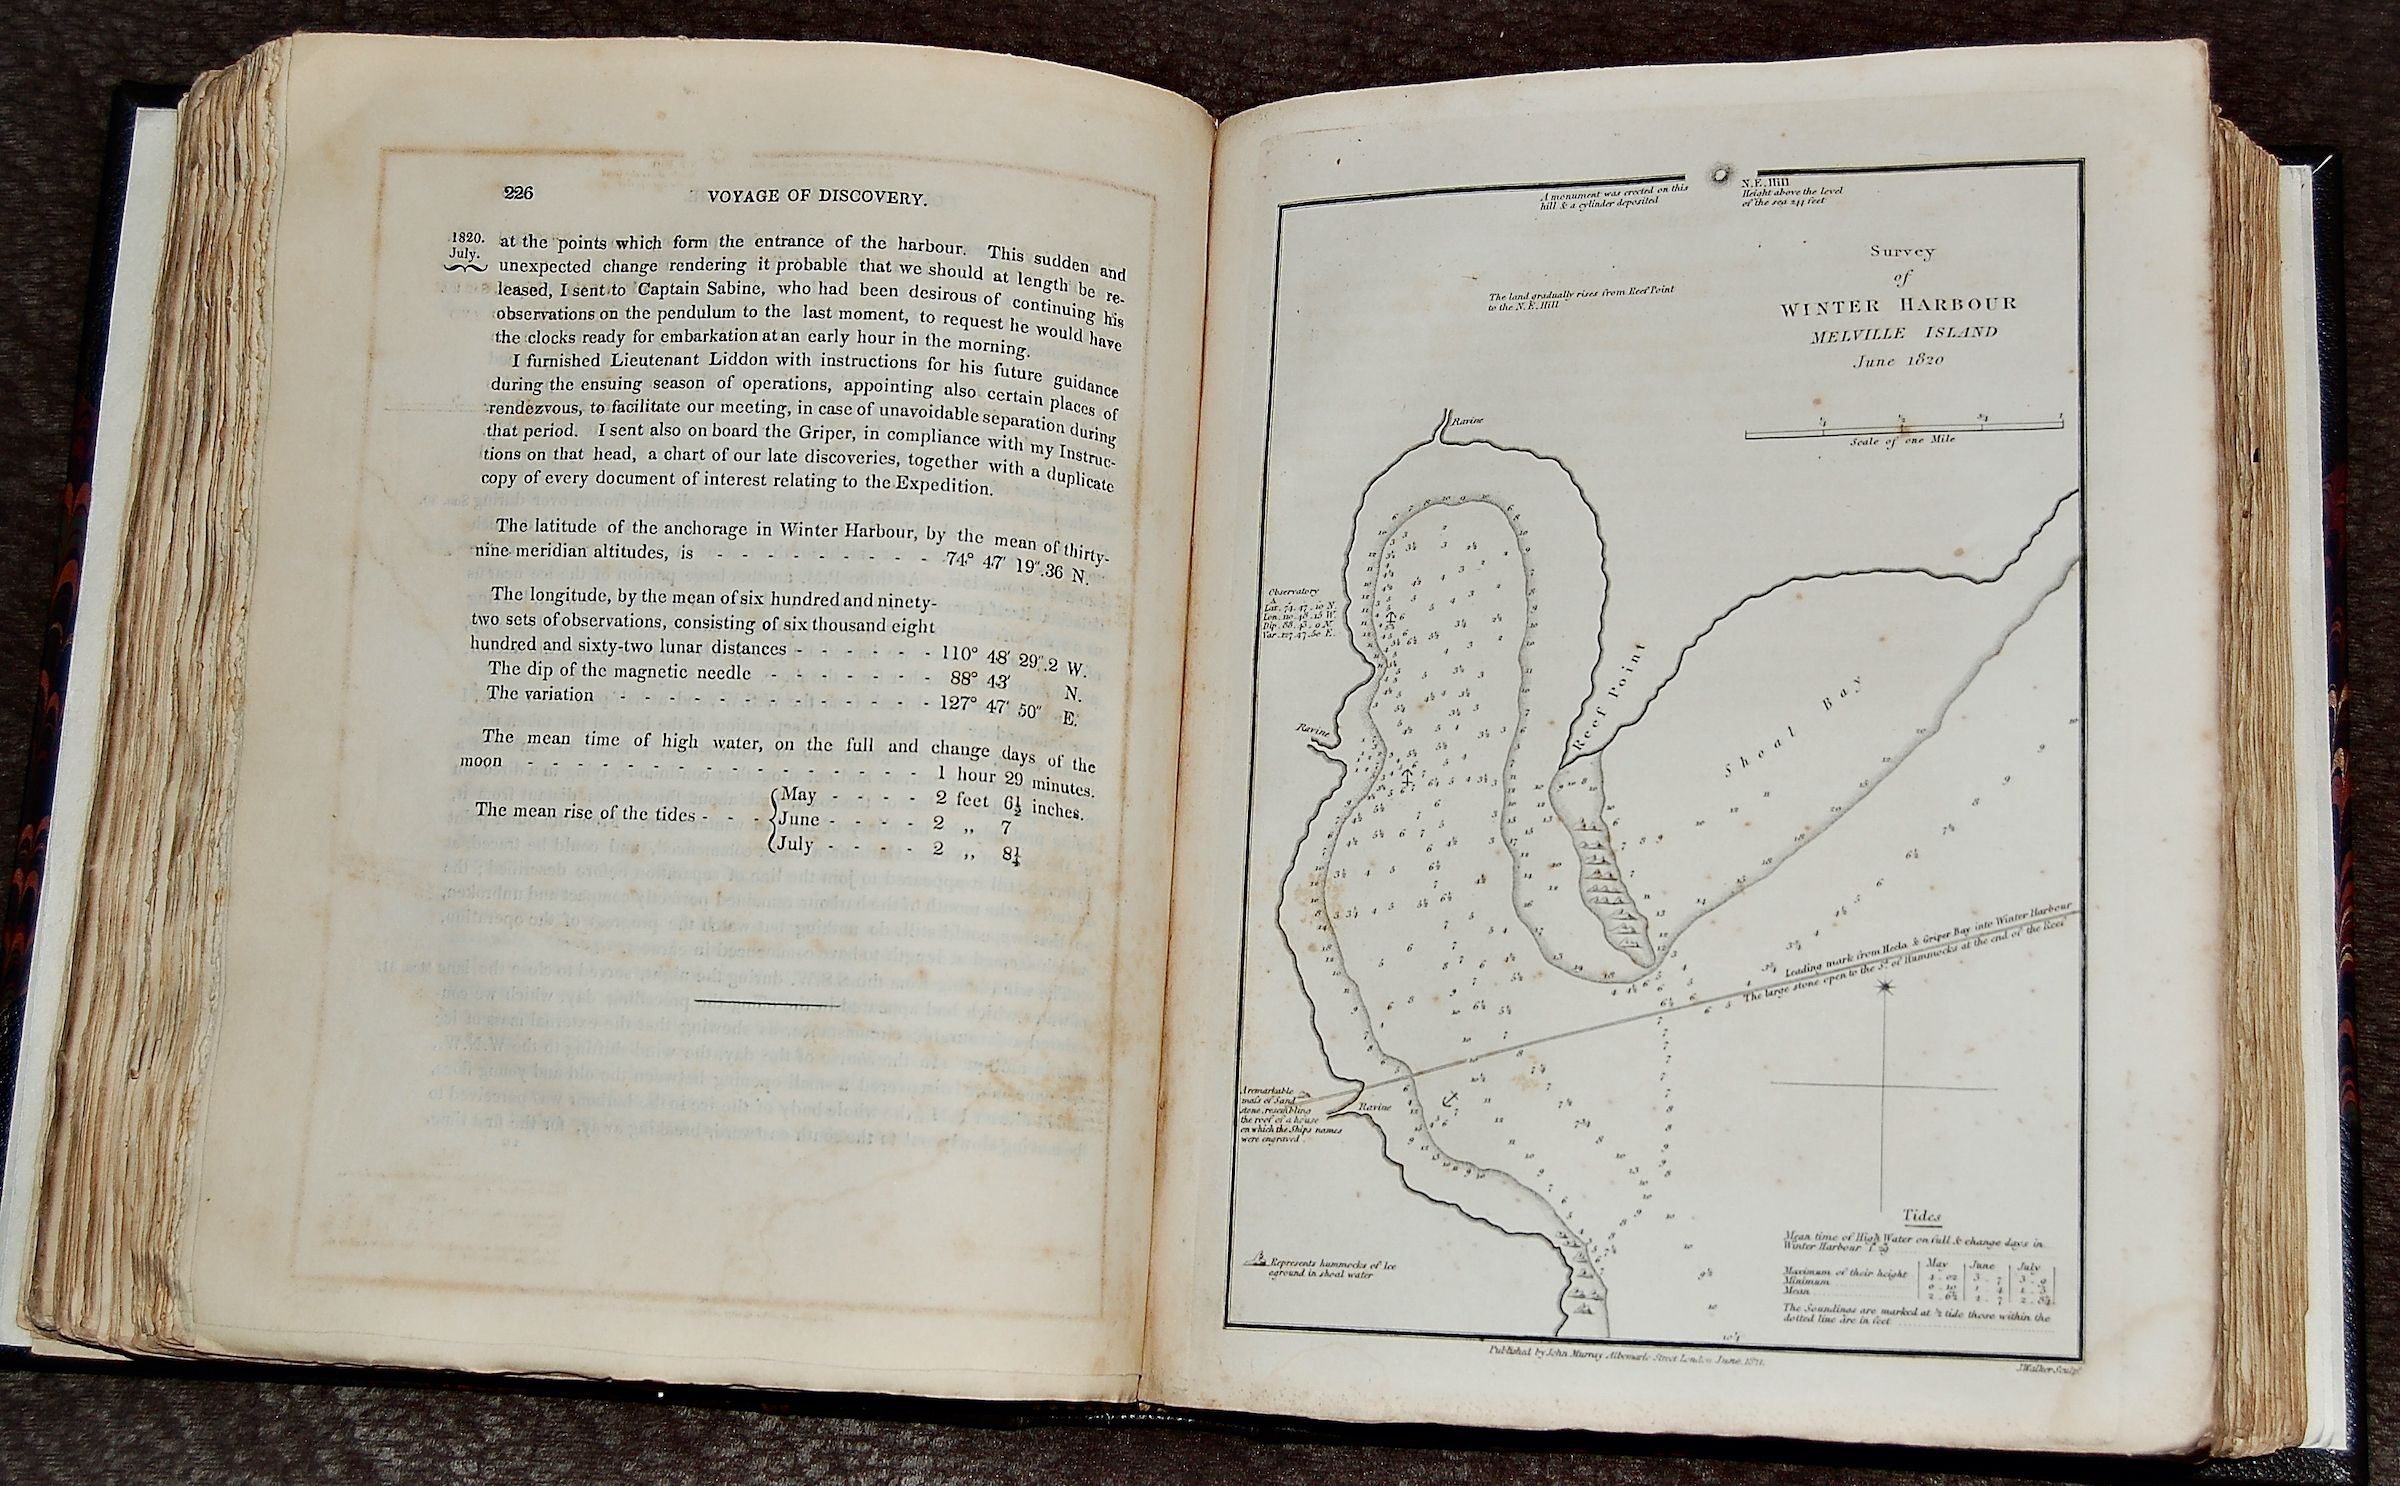 226
VOYAGE OF DISCOVERY.
1820.
July.
at the points which form the entrance of the harbour. This sudden and
unexpected change rendering it probable that we should at length be re-
leased, I sent to Captain Sabine, who had been desirous of continuing his
observations on the pendulum to the last moment, to request he would have
the clocks ready for embarkation at an early hour in the morning.
I furnished Lieutenant Liddon with instructions for his future guidance
during the ensuing season of operations, appointing also certain places of
rendezvous, to facilitate our meeting, in case of unavoidable separation during
that period. I sent also on board the Griper, in compliance with my Instruc-
tions on that head, a chart of our late discoveries, together with a duplicate
copy of every document of interest relating to the Expedition.
The latitude of the anchorage in Winter Harbour, by the mean of thirty-
nine meridian altitudes, is - - - - - - - - - 74° 47′ 19″.36 N.
The longitude, by the mean of six hundred and ninety-
two sets of observations, consisting of six thousand eight
hundred and sixty-two lunar distances - - - - - - 110° 48′ 29″.2 W.
The dip of the magnetic needle - - - - - - - 88° 43′ N.
The variation - - - - - - - - - - - - - 127° 47′ 50″ E.
The mean time of high water, on the full and change days of the
moon - - - - - - - - - - - - - - - - 1 hour 29 minutes.
The mean rise of the tides - - -
May - - - - 2 feet 6½ inches.
June - - - - 2 ,, 7
July - - - - 2 ,, 8¼
A monument was erected on this
hill & a cylinder deposited
N.E. Hill
Height above the level
of the sea 244 feet
Survey
of
WINTER HARBOUR
MELVILLE ISLAND
June 1820
The land gradually rises from Reef Point
to the N.E. Hill
Scale of one Mile
Ravine
Observatory
Lat. 74.47.10 N.
Lon. 110.48.15 W.
Dip. 88.43.0 N.
Var. 127.47.50 E.
Reef Point
Shoal Bay
Ravine
Leading mark from Hecla & Griper Bay into Winter Harbour
The large stone open to the Sd. of Hummocks at the end of the Reef
A remarkable
mass of Sand
stone, resembling
the roof of a house
on which the Ships names
were engraved
Ravine
Represents hummocks of Ice
aground in shoal water
Tides
Mean time of High Water on full & change days in
Winter Harbour 1. 29
May June July
Maximum of their height
Minimum
Mean 2 . 6½ 2 . 7 2 . 8¼
The Soundings are marked at ½ tide those within the
dotted line are in feet
Published by John Murray Albemarle Street London June, 1821.
J. Walker Sculpt.